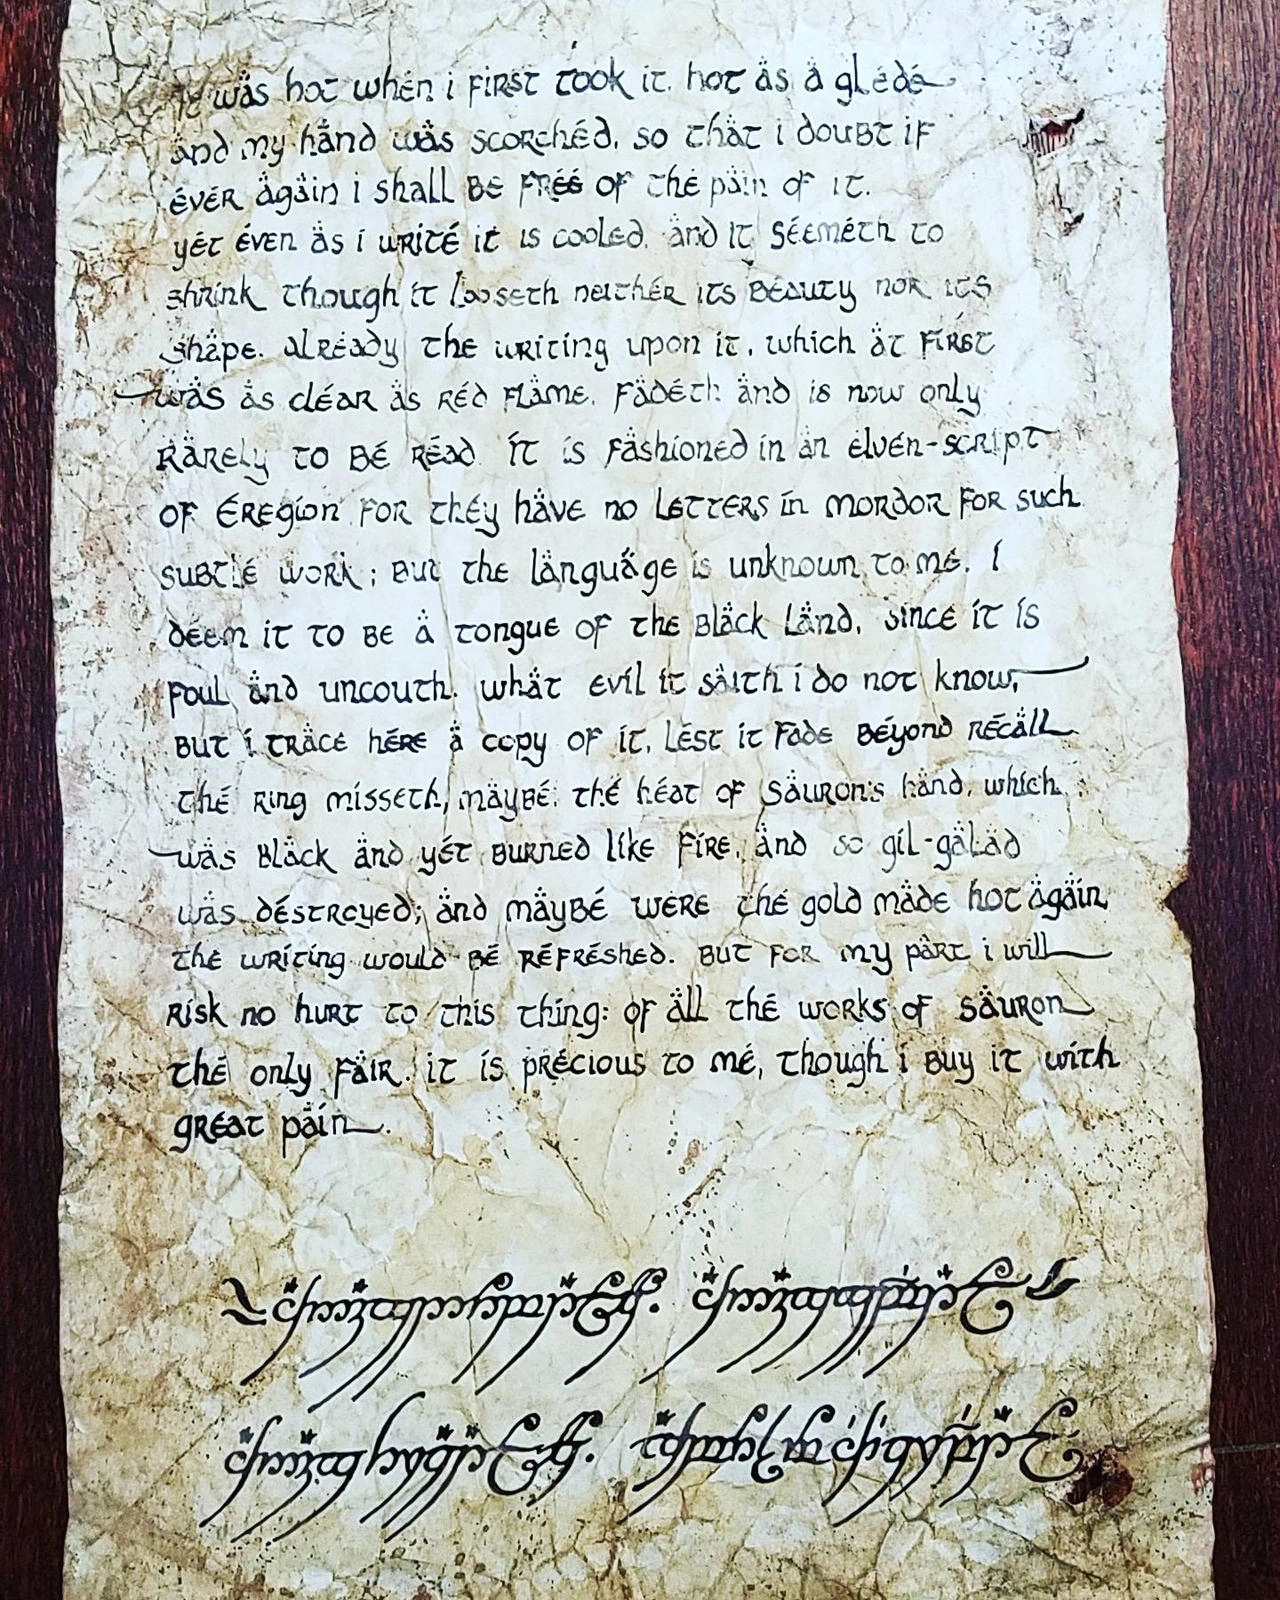 It was hot when i first took it, hot as a glede
and my hand was scorched, so that i doubt if
ever again i shall be free of the pain of it.
yet even as i write it is cooled, and it seemeth to
shrink though it looseth neither its beauty nor its
shape. already the writing upon it, which at first
was as clear as red flame, fadeth and is now only
rarely to be read. it is fashioned in an elven-script
of Eregion for they have no letters in mordor for such
subtle work; but the language is unknown to me. I
deem it to be a tongue of the black land, since it is
foul and uncouth. what evil it saith i do not know,
but i trace here a copy of it, lest it fade beyond recall
the ring misseth, maybe, the heat of sauron's hand, which
was black and yet burned like fire, and so gil-galad
was destroyed; and maybe were the gold made hot again,
the writing would be refreshed. but for my part i will
risk no hurt to this thing: of all the works of sauron
the only fair. it is precious to me, though i buy it with
great pain.